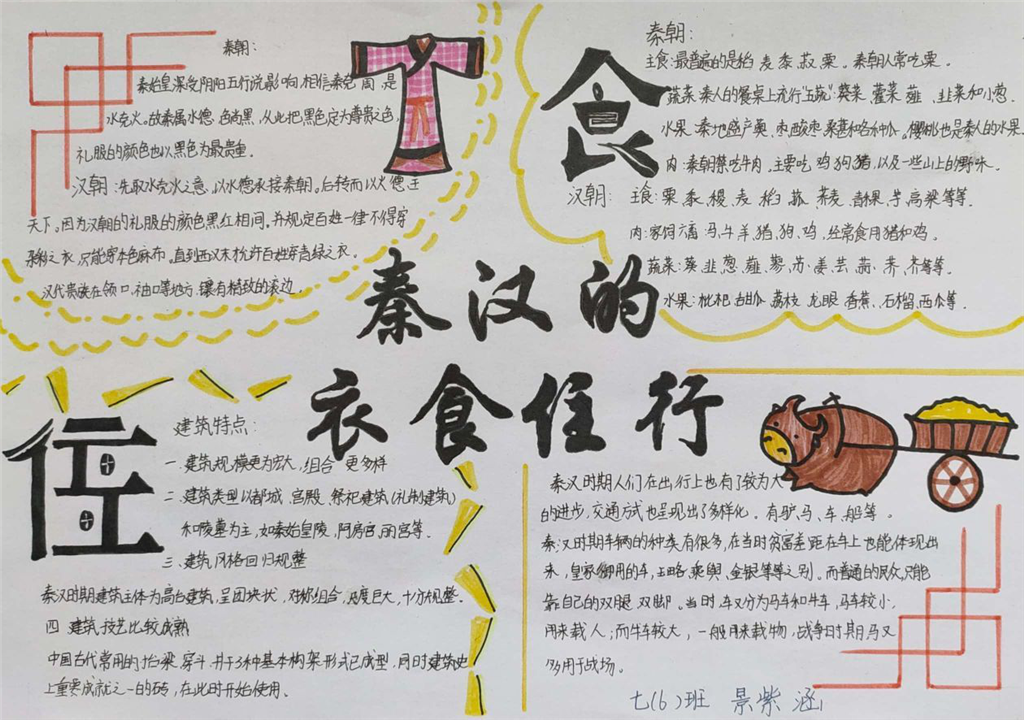 秦朝:
秦始皇深受阴阳五行说影响,相信秦克周,是
水克火。故秦属水德,色尚黑,从此把黑色定为尊贵之色,
礼服的颜色也以黑色为最贵重。
汉朝:先取水克火之意,以水德承接秦朝。后转而以火德王
天下。因为汉朝的礼服的颜色黑红相间。并规定百姓一律不得穿
杂彩之衣,只能穿本色麻布。直到西汉末,允许百姓穿青绿之衣。
汉代贵族在领口、袖口等地方镶有精致的衣边。
食
秦朝:
主食:最普遍的是稻 麦 黍 菽 粟。秦朝人常吃粟。
蔬菜:秦人的餐桌上流行"五蔬":葵菜、藿菜、薤、韭菜和小葱.
水果:秦地盛产 枣、酸枣 桑葚和各种 。樱桃也是秦人的水果.
肉:秦朝禁吃牛肉,主要吃:鸡 狗 猪,以及一些山上的野味.
汉朝: 主食:粟 黍 稷 麦 稻 菰 荞麦 青稞 芋 高粱等等.
肉:家饲六畜 马、牛、羊、猪、狗、鸡,经常食用猪和鸡.
蔬菜:葵 韭 葱 薤 蓼 苏 姜 芸 茄 荠 芥等等.
水果:枇杷 甜 荔枝 龙眼 香蕉、石榴、西瓜等.
秦汉的
衣食住行
住
建筑特点:
一.建筑规模更为宏大,组合更多样
二.建筑类型以都城、宫殿、祭祀建筑(礼制建筑)
和陵墓为主,如秦始皇陵,阿房宫、 宫等.
三、建筑风格回归规整
秦汉时期建筑主体为高台建筑,呈团块状,对称组合,尺度巨大,十分规整.
四 建筑技艺比较成熟
中国古代常用的抬梁、穿斗、井干3种基本构架形式已成型,同时建筑史
上重要成就之一的砖,在此时开始使用.
秦汉时期人们在出行上也有了较为大
的进步,交通方式也呈现出了多样化.有驴、马、车、船等.
秦汉时期车辆的种类有很多,在当时贫富差距在车上也能体现出
来,皇家御用的车,玉辂、乘舆、金银等等之别。而普通的民众,只能
靠自己的双腿 双脚。当时,车又分为马车和牛车,马车较小,
用来载人;而牛车较大,一般用来载物,战争时期马又
多用于战场。
七(6)班 景紫涵